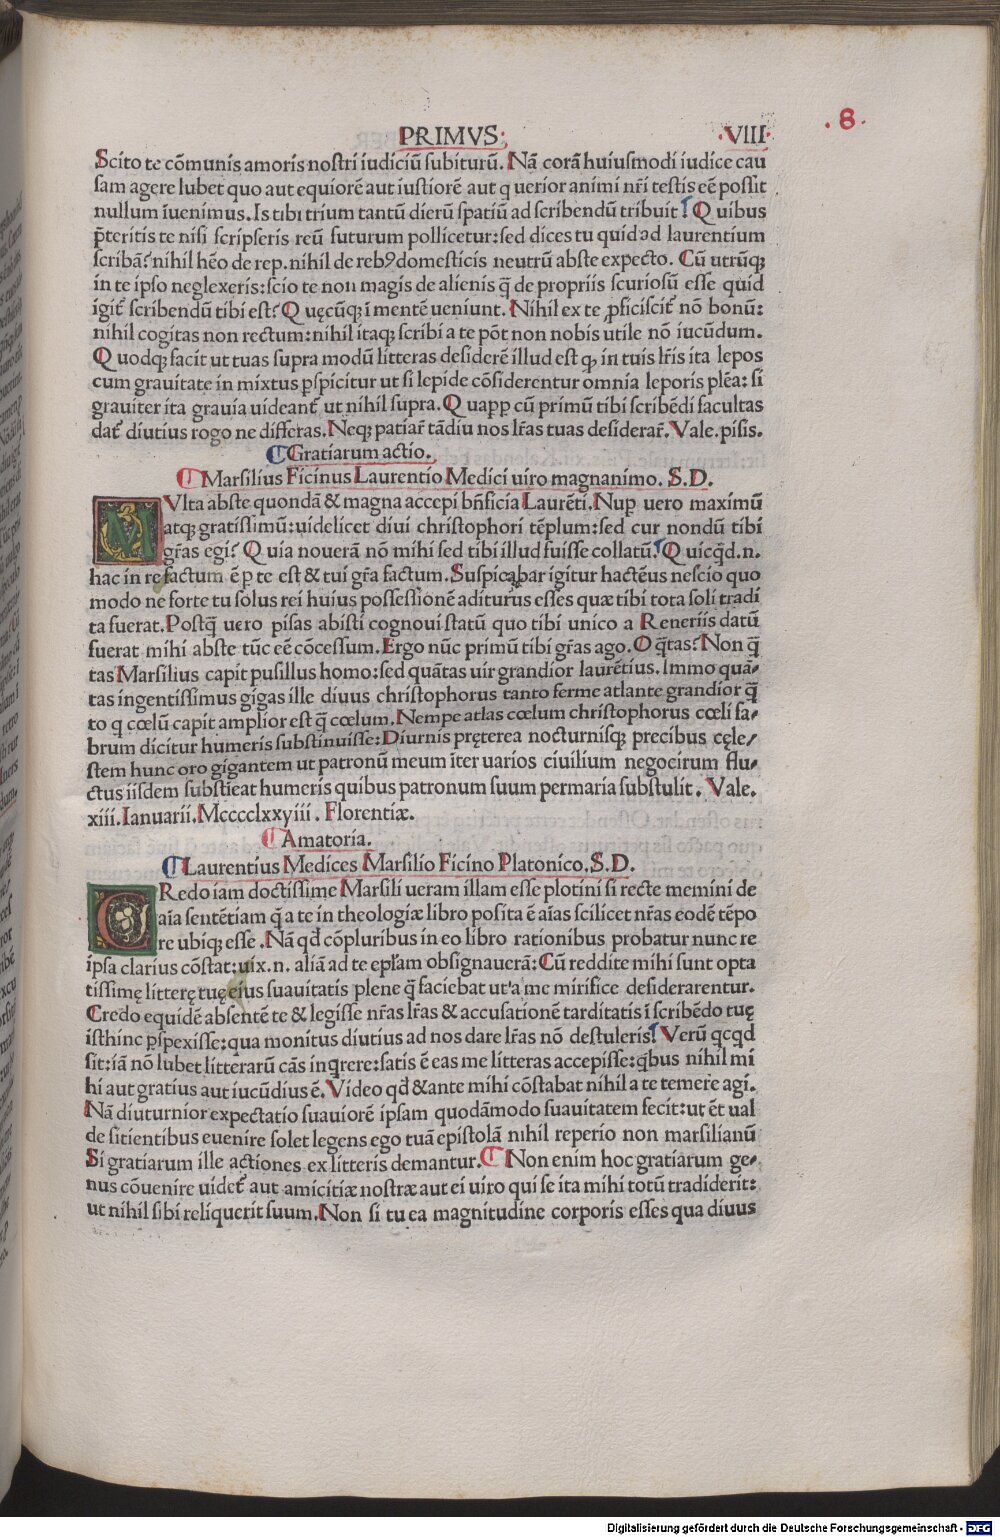 .8.
PRIMVS. .VIII.
Scito te cõmunis amoris nostri iudiciũ subiturũ. Nã corã huiusmodi iudice cau
sam agere lubet quo aut equiorẽ aut iustiorẽ aut q uerior animi nr̃i testis eẽ possit
nullum ĩuenimus. Is tibi trium tantũ dierũ spatiũ ad scribendũ tribuit! Q uibus
p̃teritis te nisi scripseris reũ futurum pollicetur: sed dices tu quid ad laurentium
scribã? nihil hẽo de rep. nihil de reb9 domesticis neutrũ abs te expecto. Cũ utrũq;
in te ipso neglexeris: scio te non magis de alienis q̃ de propriis scuriosũ esse quid
igit̃ scribendũ tibi est? Q uęcũq; ĩ mentẽ ueniunt. Nihil ex te ꝓficiscit̃ nõ bonũ:
nihil cogitas non rectum: nihil itaq; scribi a te põt non nobis utile nõ iucũdum.
Q uodq; facit ut tuas supra modũ litteras desiderẽ illud est q; in tuis lr̃is ita lepos
cum grauitate in mixtus ꝑspicitur ut si lepide cõsiderentur omnia leporis plẽa: si
grauiter ita grauia uideant̃ ut nihil supra. Q uapp cũ primũ tibi scribẽdi facultas
dat̃ diutius rogo ne differas. Neq; patiar̃ tãdiu nos lr̃as tuas desiderar̃. Vale. pisis.
Gratiarum actio.
Marsilius Ficinus Laurentio Medici uiro magnanimo. S.D.
MVlta abs te quondã & magna accepi bñficia Laurẽti. Nup uero maximũ
atq; gratissimũ: uidelicet diui christophori tẽplum: sed cur nondũ tibi
gr̃as egi? Q uia nouerã nõ mihi sed tibi illud fuisse collatũ! Q uicq̃d .n.
hac in re factum ẽ p te est & tui gr̃a factum. Suspicabar igitur hactẽus nescio quo
modo ne forte tu solus rei huius possessionẽ aditurus esses quæ tibi tota soli tradi
ta fuerat. Postq̃ uero pisas abisti cognoui statũ quo tibi unico a Reneriis datũ
fuerat mihi abs te tũc eẽ cõcessum. Ergo nũc primũ tibi gr̃as ago. O q̃tas? Non q̃
tas Marsilius capit pusillus homo: sed quãtas uir grandior laurẽtius. Immo quã-
tas ingentissimus gigas ille diuus christophorus tanto ferme atlante grandior q̃
to q cœlũ capit amplior est q̃ cœlum. Nempe atlas cœlum christophorus cœli fa-
brum dicitur humeris substinuisse: Diurnis pręterea nocturnisq; precibus cęle-
stem hunc oro gigantem ut patronũ meum ĩter uarios ciuilium negocirum flu-
ctus iisdem substĩeat humeris quibus patronum suum per maria substulit. Vale.
xiii. Ianuarii. Mcccclxxyiii. Florentiæ.
Amatoria.
Laurentius Medices Marsilio Ficino Platonico. S.D.
CRedo iam doctissime Marsili ueram illam esse plotini si recte memini de
aĩa sentẽtiam q̃ a te in theologiæ libro posita ẽ aĩas scilicet nr̃as eodẽ tẽpo
re ubiq; esse. Nã qd̃ cõpluribus in eo libro rationibus probatur nunc re
ipsa clarius cõstat: uix .n. aliã ad te epl̃am obsignauerã: Cũ reddite mihi sunt opta
tissimę litterę tuę eius suauitatis plene q̃ faciebat ut a me mirifice desiderarentur.
Credo equidẽ absentẽ te & legisse nr̃as lr̃as & accusationẽ tarditatis ĩ scribẽdo tuę
isthinc ꝑspexisse: qua monitus diutius ad nos dare lr̃as nõ destuleris! Verũ qcqd
sit: iã nõ lubet litterarũ cãs inqrere: satis ẽ eas me litteras accepisse: qbus nihil mi
hi aut gratius aut iucũdius ẽ. Video qd̃ & ante mihi cõstabat nihil a te temere agi.
Nã diuturnior expectatio suauiorẽ ipsam quodãmodo suauitatem fecit: ut ẽt ual
de sitientibus euenire solet legens ego tuã epistolã nihil reperio non marsilianũ
Si gratiarum ille actiones ex litteris demantur. Non enim hoc gratiarum ge-
nus cõuenire uidet̃ aut amicitiæ nostræ aut ei uiro qui se ita mihi totũ tradiderit:
ut nihil sibi reliquerit suum. Non si tu ea magnitudine corporis esses qua diuus
Digitalisierung gefördert durch die Deutsche Forschungsgemeinschaft - DFG